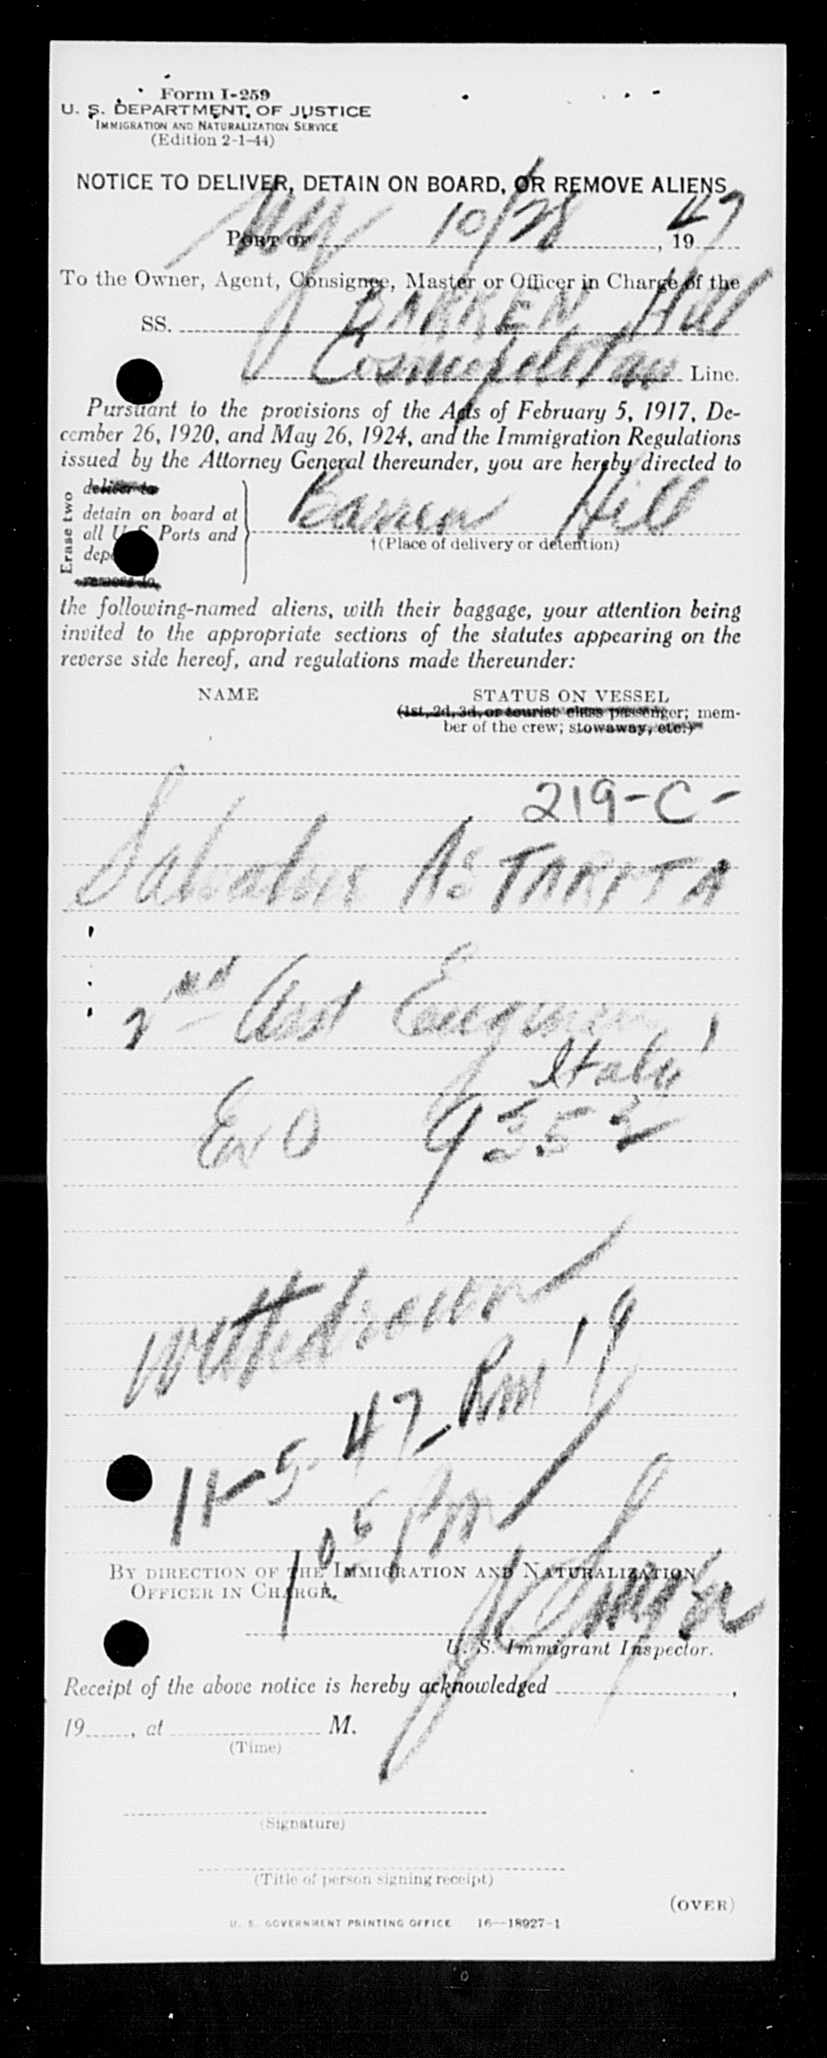 Form I-259
U. S. DEPARTMENT OF JUSTICE
IMMIGRATION AND NATURALIZATION SERVICE
(Edition 2-1-44)
NOTICE TO DELIVER, DETAIN ON BOARD, OR REMOVE ALIENS
PORT OF NY 10/28, 1947
To the Owner, Agent, Consignee, Master or Officer in Charge of the
SS. BARREN Hill
Cosmopolitan Line.
Pursuant to the provisions of the Acts of February 5, 1917, De-
cember 26, 1920, and May 26, 1924, and the Immigration Regulations
issued by the Attorney General thereunder, you are hereby directed to
Erase two
deliver to
detain on board at
all U. S. Ports and
dep
remove to
Barren Hill
†(Place of delivery or detention)
the following-named aliens, with their baggage, your attention being
invited to the appropriate sections of the statutes appearing on the
reverse side hereof, and regulations made thereunder:
NAME STATUS ON VESSEL
(1st, 2d, 3d, or tourist class passenger; mem-
ber of the crew; stowaway, etc.)
219-C-
Salvatore AsTARITA
2nd Asst Engineer
Italy
ExO 9352
Withdrawn
11-5-47
PM
BY DIRECTION OF THE IMMIGRATION AND NATURALIZATION
OFFICER IN CHARGE.
U. S. Immigrant Inspector.
Receipt of the above notice is hereby acknowledged ,
19 , at M.
(Time)
(Signature)
(Title of person signing receipt)
(OVER)
U. S. GOVERNMENT PRINTING OFFICE 16—18927-1